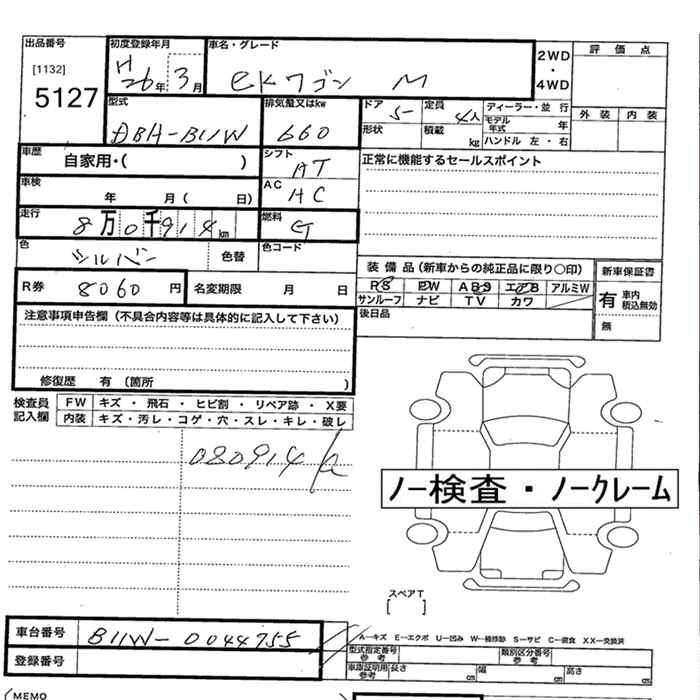 出品番号 初度登録年月 車名・グレード 2WD・4WD 評価点
[1132] 5127 H26年 3月 eKワゴン M
型式 排気量又はkw ドア 5 定員 4人 ディーラー・並行 外装 内装
DBA-B11W 660 形状 積載 kg モデル年式 年 ハンドル 左・右
車歴 自家用・( ) シフト AT 正常に機能するセールスポイント
車検 年 月( 日) AC
走行 8万0千914km 燃料 G
色 シルバー 色替 色コード 装備品(新車からの純正品に限り○印) 新車保証書
R券 8060円 名変期限 月 日 PS PW ABS エアB アルミW
サンルーフ ナビ TV カワ 有 車内積込無効
注意事項申告欄(不具合内容等は具体的に記入して下さい) 後日品 無
修復歴 有(箇所 )
検査員記入欄 FW キズ・飛石・ヒビ割・リペア跡・X要
内装 キズ・汚レ・コゲ・穴・スレ・キレ・破レ
080914
ノー検査・ノークレーム
スペアT
[ ]
A―キズ E―エクボ U―凹み W―補修跡 S―サビ C―腐食 XX―交換済
車台番号 B11W-0044755 型式指定番号 参考 類別区分番号 参考
登録番号 車庫証明用 参考 長さ cm 幅 cm 高さ cm
(MEMO